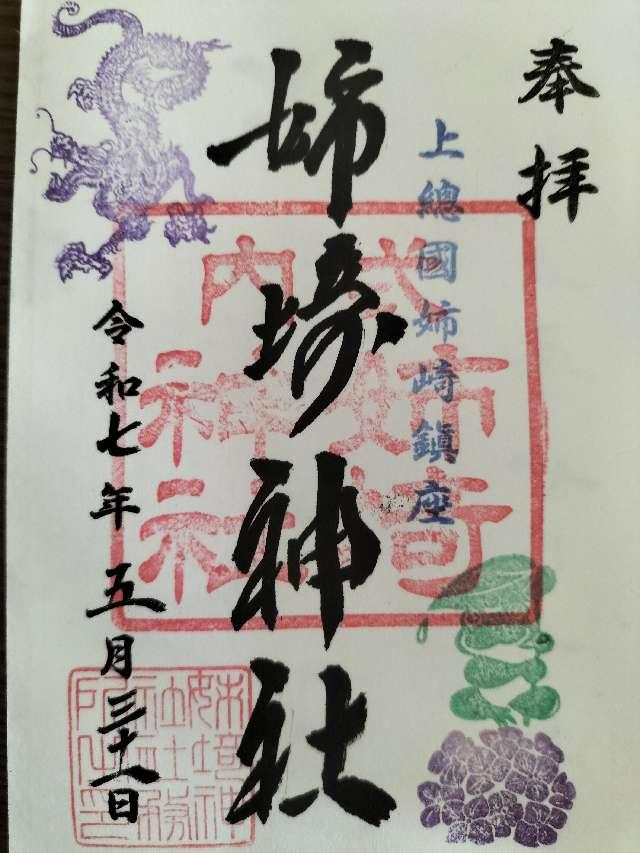 奉拝
上總國姉崎鎮座
姉埼神社
令和七年五月三十一日
式内
姉埼
神社